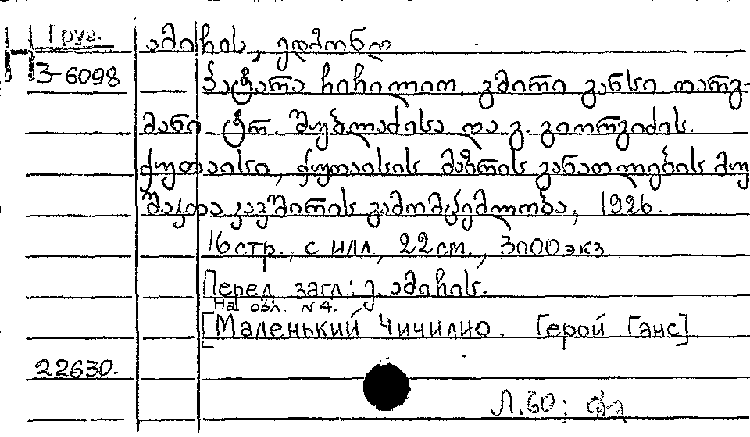 Груз.
Н
З-6098
ამიჩის, ედმონდო
პატარა ჩიჩილიო. გმირი განსი თარგ-
მანი ტრ. შუბლაძისა და გ. გიორგიძის.
ქუთაისი, ქუთაისის მაზრის განათლების მუ
შაკთა კავშირის გამომცემლობა, 1926.
16 стр., с илл, 22 см., 3000 экз
Перед загл: ე. ამიჩის.
На обл. №4.
[Маленький Чичилио. Герой Ганс]
22630.
Л.60;